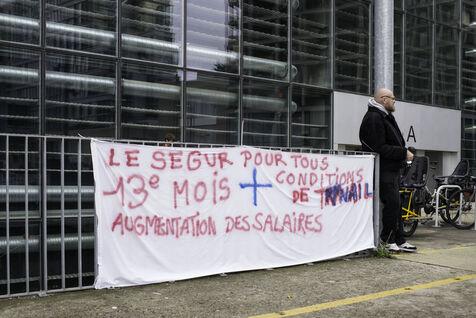 LE SEGUR POUR TOUS
13e MOIS + CONDITIONS
DE TRAVAIL
AUGMENTATION DES SALAIRES
A